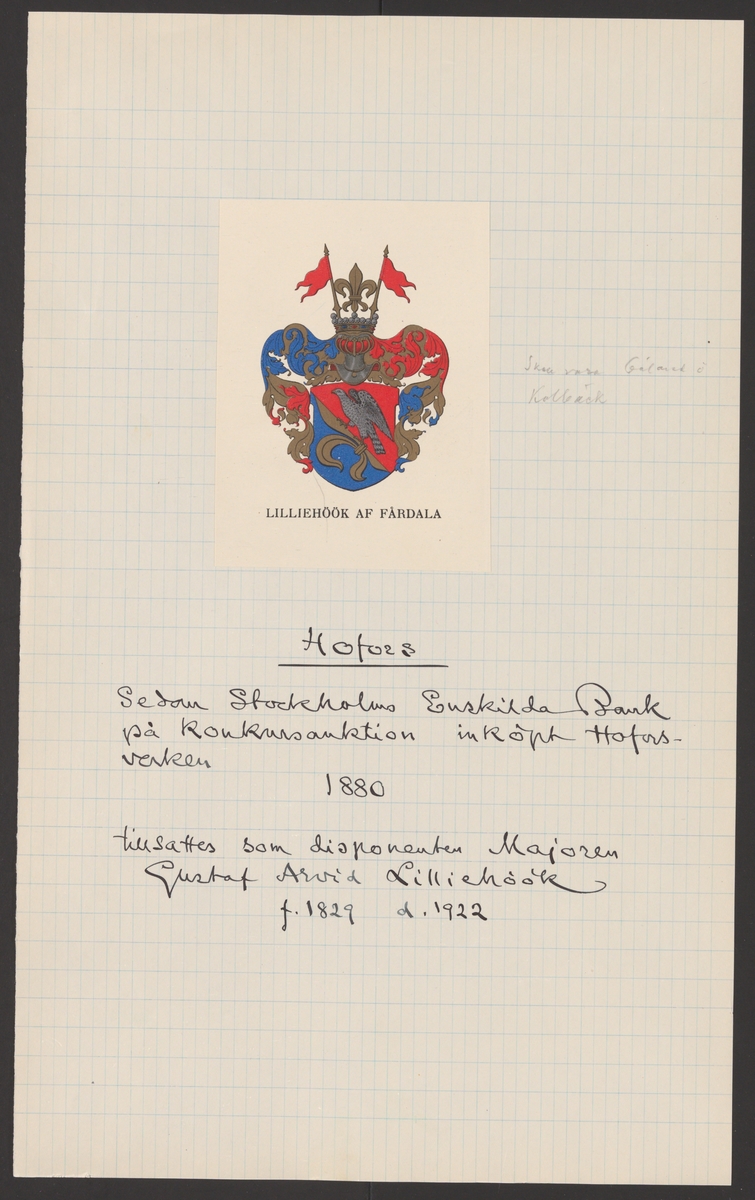 LILLIEHÖÖK AF FÅRDALA
Kolbäck
Hofors
Sedan Stockholms Enskilda Bank
på konkursauktion inköpt Hofors-
verken
1880
tillsattes som disponenten Majoren
Gustaf Arvid Lilliehöök
f. 1829 d. 1922